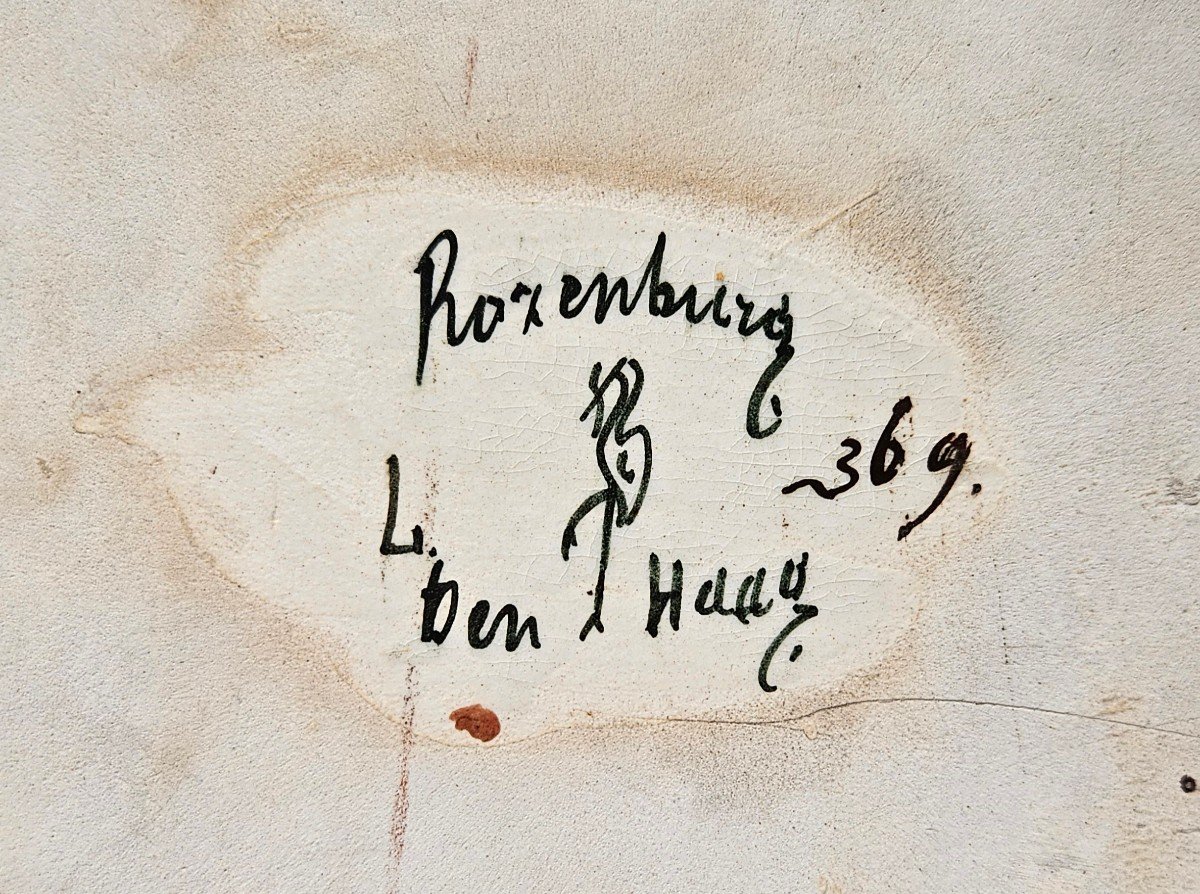 Rozenburg
369.
L.
Den Haag